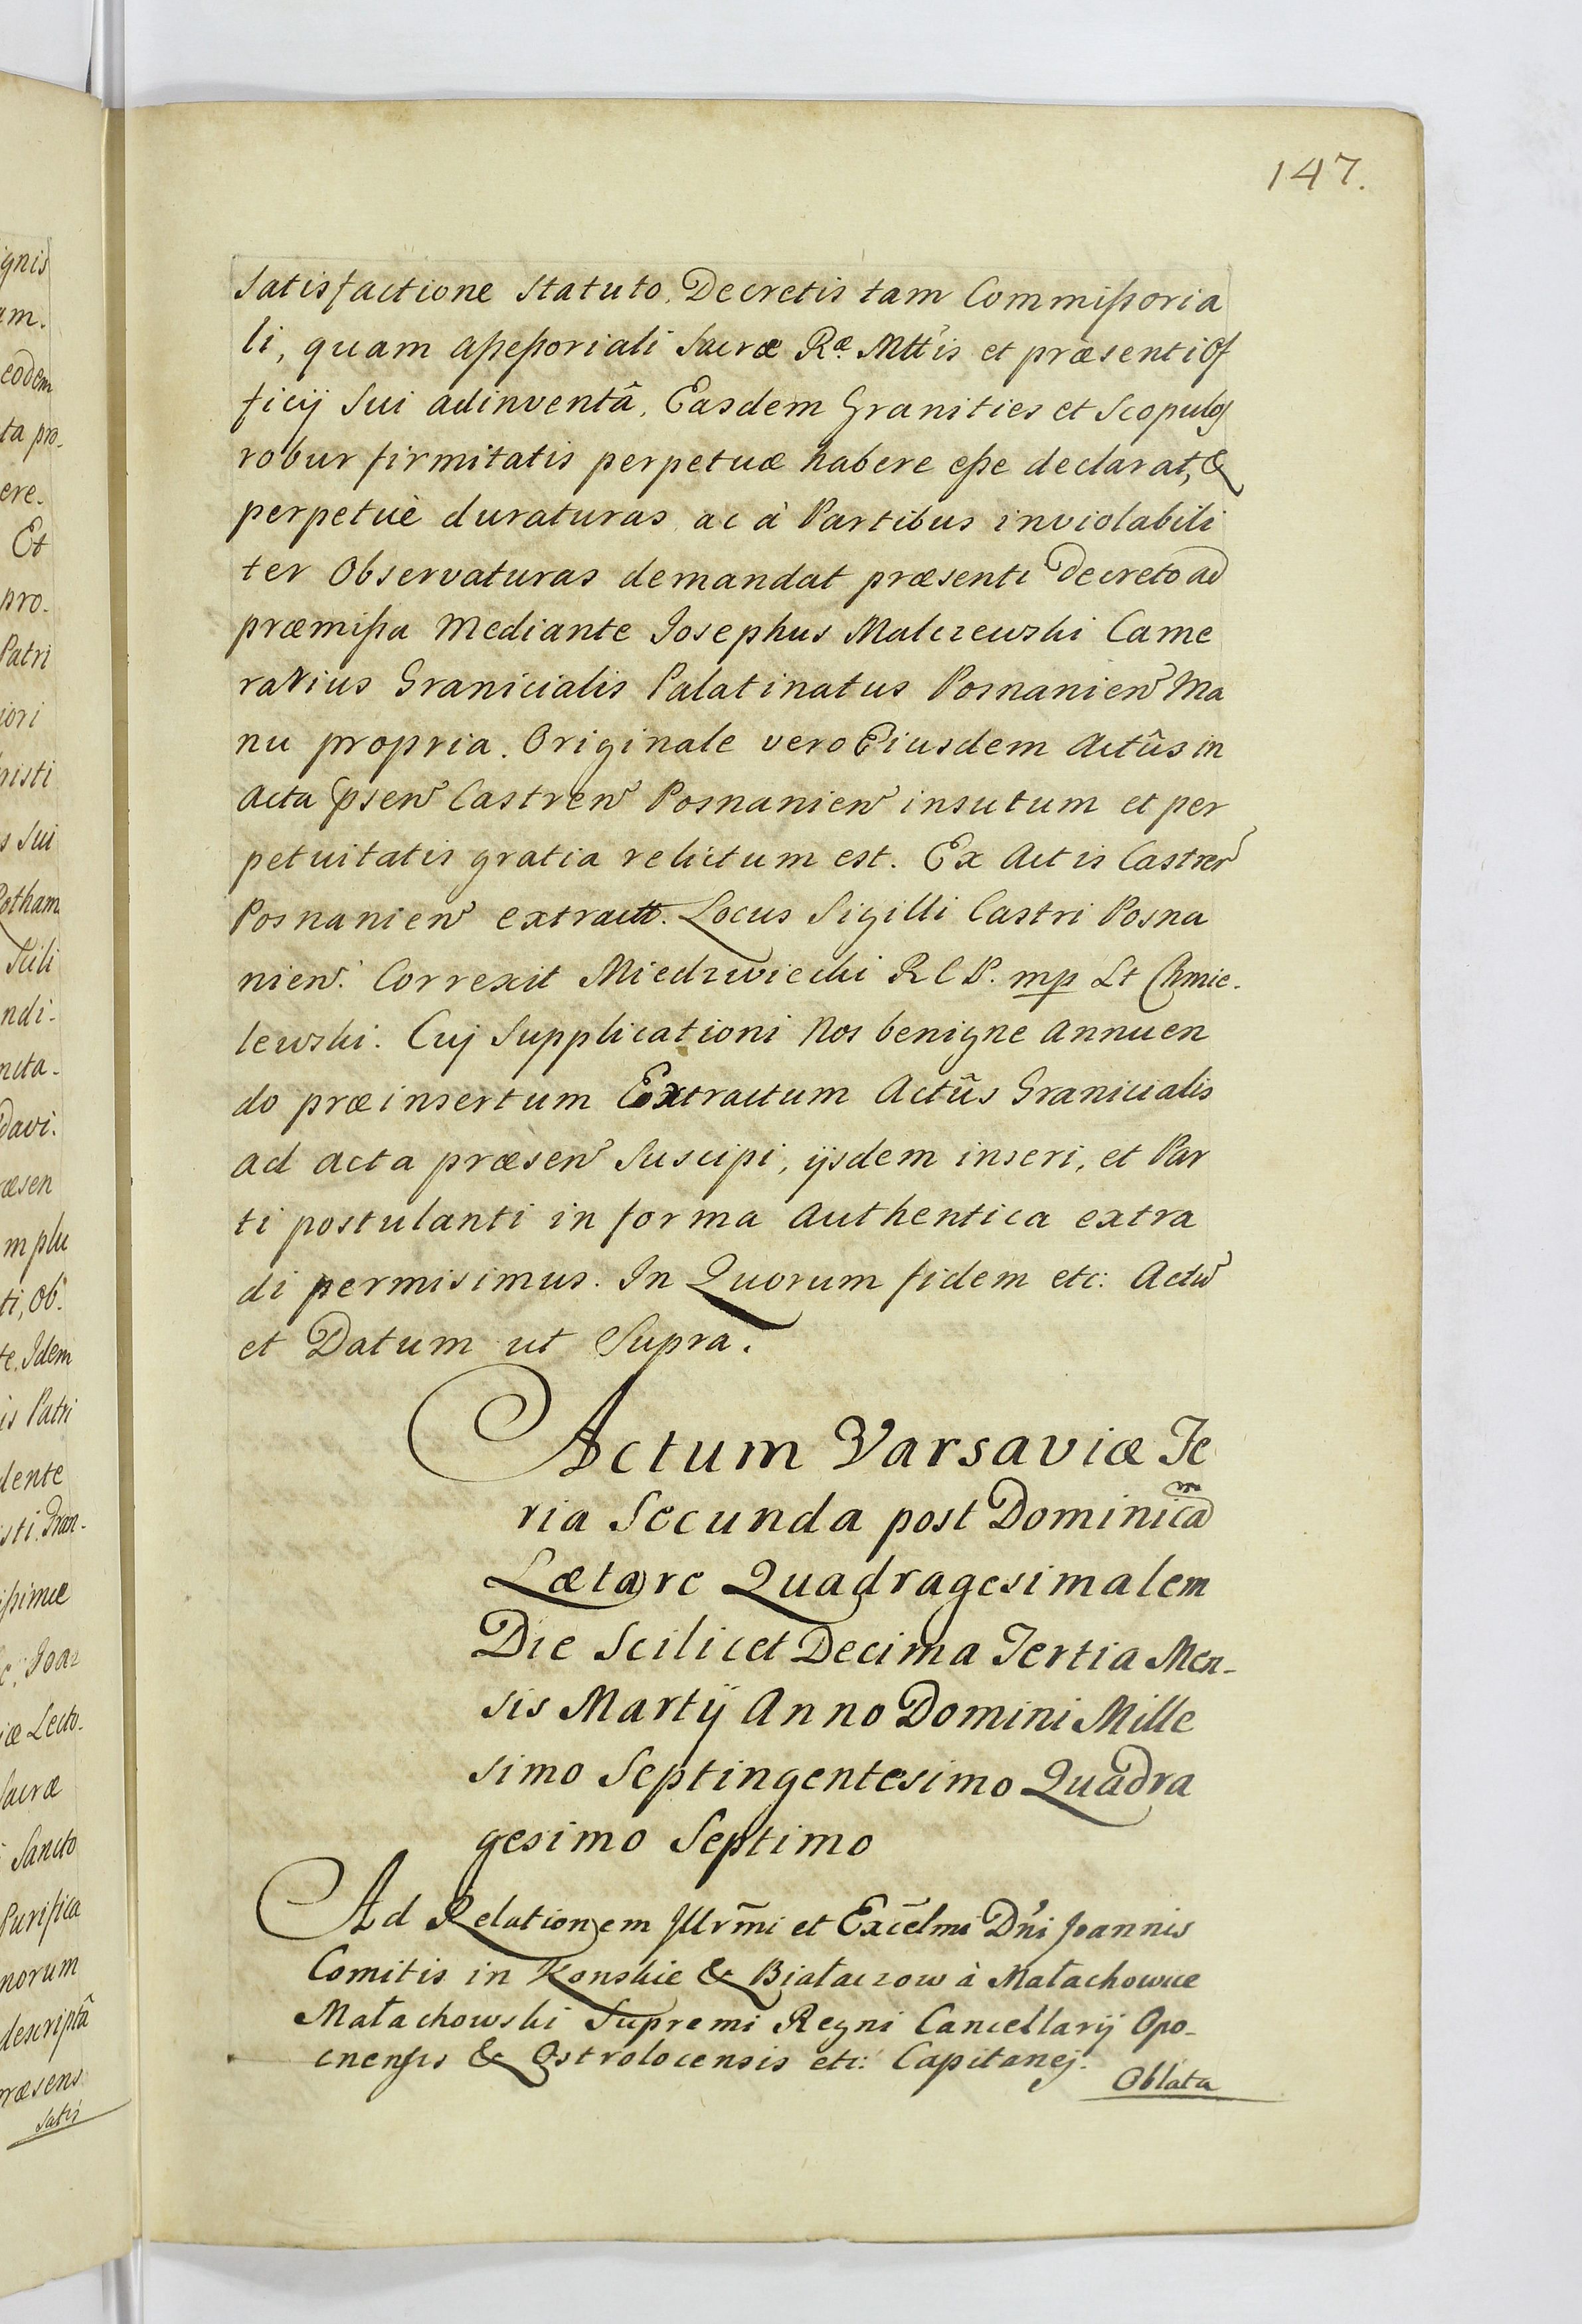 147.
Satisfactione Statuto, Decretis tam Commißoria
li, quam aßeßoriali Sacræ Ræ Mttis et præsenti Of
ficij Sui adinventâ, Easdem Granities et Scopulos
robur firmitatis perpetuæ habere eße declarat, &
perpetuè duraturas ac à Partibus inviolabili
ter Observaturas demandat præsenti Decreto ad
præmißa Mediante Josephus Malczewski Came
rarius Granicialis Palatinatus Posnanien Ma
nu propria. Originale vero Eiusdem Actûs in
Acta psen Castren Posnanien insutum et per
petuitatis gratia relictum est. Ex Actis Castren
Posnanien extractt. Locus Sigilli Castri Posna
nien. Correxit Miedzwiecki R C P. mp Lt Chmie-
lewski. Cuj Supplicationi Nos benigne Annuen
do præinsertum Extractum Actûs Granicialis
ad acta præsen Suscipi, ijsdem inseri, et Par
ti postulanti in forma Authentica extra
di permisimus. In Quorum fidem etc: Actu
et Datum ut Supra.
Actum Varsaviæ Fe
ria Secunda post Dominica
Lætare Quadragesimalem
Die Scilicet Decima Tertia Men-
sis Martij Anno Domini Mille
simo Septingentesimo Quadra
gesimo Septimo
Ad Relationem Jllrm̃i et Excel̃mi Dñi Joannis
Comitis in Konskie & Białaczow à Małachowice
Małachowski Supremi Regni Cancellarij Opo-
cnensis & Ostrolocensis etc: Capitanej.
Oblata
ignis
am.
eodem
ta pro-
ere-
Et
pro-
Patri
iori
s Sui
otham
Scili
ndi-
ncta-
Davi-
ræsen
m plu
ti, Ob-
te. Idem
is Patri
dente
sti. Fran-
ißimæ
iæ Lecto-
Sacræ
Sancto
Purifica
norum
descriptâ
ræsens
Satis